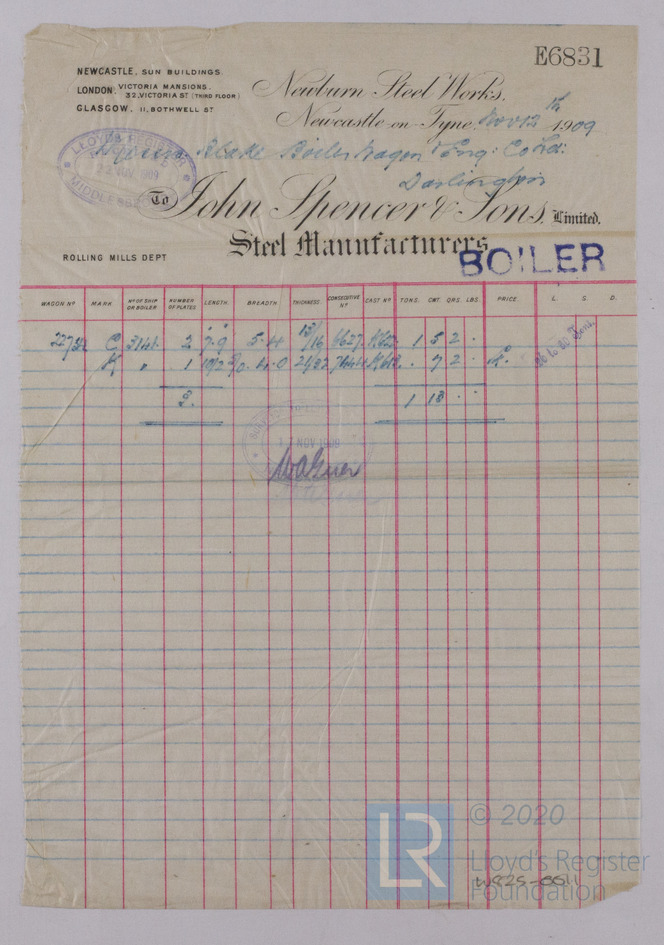 E6831
NEWCASTLE, SUN BUILDINGS.
LONDON, VICTORIA MANSIONS, 32, VICTORIA ST (THIRD FLOOR)
GLASGOW, 11, BOTHWELL ST
Newburn Steel Works,
Newcastle-on-Tyne, Nov 12th 1909
Blake Boiler Wagon & Eng: Co Ld:
Darlington
LLOYD'S REGISTER
22 NOV 1909
MIDDLESBRO
To John Spencer & Sons, Limited.
Steel Manufacturers
ROLLING MILLS DEPT
BOILER
WAGON No MARK No OF SHIP OR BOILER NUMBER OF PLATES LENGTH. BREADTH. THICKNESS. CONSECUTIVE No CAST No TONS. CWT. QRS. LBS. PRICE. L. S. D.
C 3141. 2 7.9 5.4 13/16 6627 1 5 2 .
K " 1 4.0 21/32 . 7 2 .
3. 1 13 . .
17 NOV 1909
© 2020
LR
Lloyd's Register
Foundation